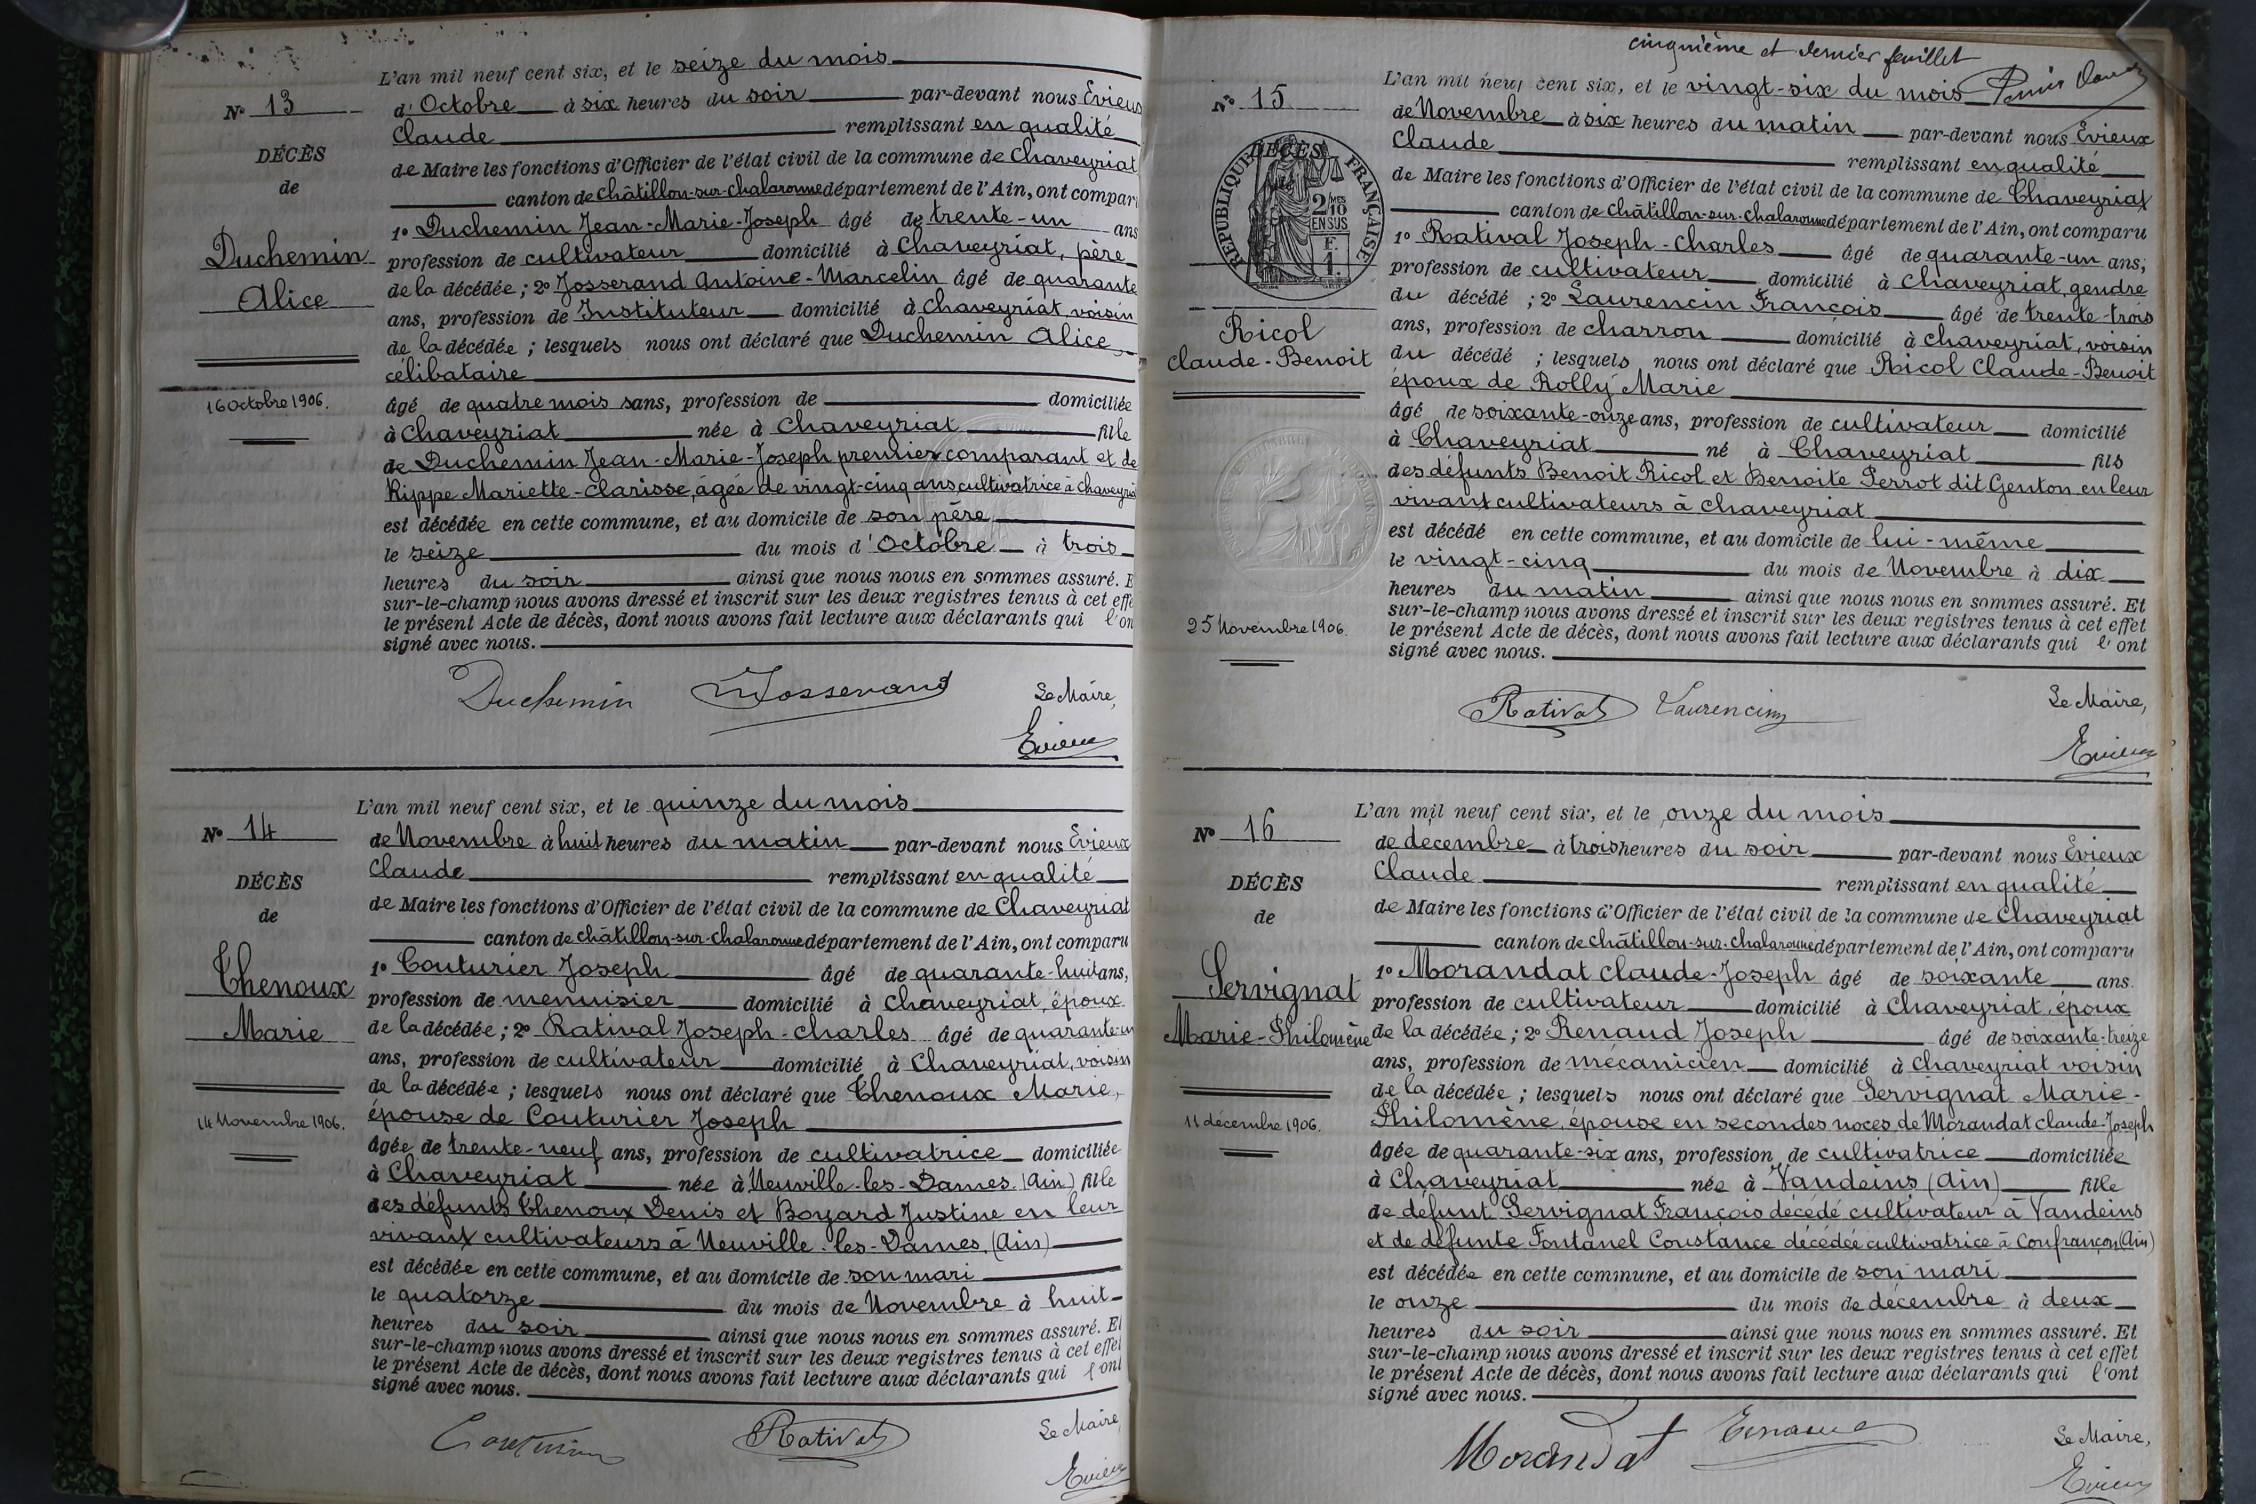 L'an mil neuf cent six, et le seize du mois
N° 13
d'Octobre à six heures du soir par-devant nous Evieux
Claude remplissant en qualité
DÉCÈS
de Maire les fonctions d'Officier de l'état civil de la commune de Chaveyriat
de
canton de Châtillon-sur-Chalaronne département de l'Ain, ont compar
1° Duchemin Jean-Marie-Joseph âgé de trente-un ans
Duchemin
profession de cultivateur domicilié à Chaveyriat, père
Alice
de la décédée ; 2° Josserand Antoine-Marcelin âgé de quarante
ans, profession de Instituteur domicilié à Chaveyriat, voisin
de la décédée ; lesquels nous ont déclaré que Duchemin Alice,
célibataire
16 Octobre 1906.
âgé de quatre mois sans, profession de domiciliée
à Chaveyriat née à Chaveyriat fille
de Duchemin Jean-Marie-Joseph premier comparant et de
Rippe Mariette-Clarisse, âgée de vingt-cinq ans cultivatrice à Chaveyriat
est décédée en cette commune, et au domicile de son père
le seize du mois d'Octobre à trois
heures du soir ainsi que nous nous en sommes assuré. E
sur-le-champ nous avons dressé et inscrit sur les deux registres tenus à cet effe
le présent Acte de décès, dont nous avons fait lecture aux déclarants qui l'on
signé avec nous.
Duchemin Josserand Le Maire,
Evieux
L'an mil neuf cent six, et le quinze du mois
N° 14
de Novembre à huit heures du matin par-devant nous Evieux
Claude remplissant en qualité
DÉCÈS
de Maire les fonctions d'Officier de l'état civil de la commune de Chaveyriat
de
canton de Châtillon-sur-Chalaronne département de l'Ain, ont comparu
1° Couturier Joseph âgé de quarante-huit ans,
Thenoux
profession de menuisier domicilié à Chaveyriat, époux
Marie
de la décédée ; 2° Ratival Joseph-Charles âgé de quarante-un
ans, profession de cultivateur domicilié à Chaveyriat, voisin
de la décédée ; lesquels nous ont déclaré que Thenoux Marie,
14 Novembre 1906.
épouse de Couturier Joseph
âgée de trente-neuf ans, profession de cultivatrice domiciliée
à Chaveyriat née à Neuville-les-Dames (Ain) fille
des défunts Thenoux Denis et Boyard Justine en leur
vivant cultivateurs à Neuville-les-Dames, (Ain)
est décédée en cette commune, et au domicile de son mari
le quatorze du mois de Novembre à huit
heures du soir ainsi que nous nous en sommes assuré. Et
sur-le-champ nous avons dressé et inscrit sur les deux registres tenus à cet effet
le présent Acte de décès, dont nous avons fait lecture aux déclarants qui l'ont
signé avec nous.
Couturier Ratival Le Maire,
Evieux
cinquième et dernier feuillet
L'an mil neuf cent six, et le vingt-six du mois
N° 15
de Novembre à six heures du matin par-devant nous Evieux
Claude remplissant en qualité
DÉCÈS
RÉPUBLIQUE FRANÇAISE
2/10 MES
EN SUS
F.
1.
de Maire les fonctions d'Officier de l'état civil de la commune de Chaveyriat
canton de Châtillon-sur-Chalaronne département de l'Ain, ont comparu
1° Ratival Joseph-Charles âgé de quarante-un ans,
profession de cultivateur domicilié à Chaveyriat, gendre
du décédé ; 2° Laurencin François âgé de trente-trois
Ricol
ans, profession de charron domicilié à Chaveyriat, voisin
Claude-Benoit
du décédé ; lesquels nous ont déclaré que Ricol Claude-Benoit
époux de Rolly Marie
âgé de soixante-onze ans, profession de cultivateur domicilié
à Chaveyriat né à Chaveyriat fils
des défunts Benoit Ricol et Benoite Perrot dit Genton en leur
vivant cultivateurs à Chaveyriat
est décédé en cette commune, et au domicile de lui-même
le vingt-cinq du mois de Novembre à dix
heures du matin ainsi que nous nous en sommes assuré. Et
sur-le-champ nous avons dressé et inscrit sur les deux registres tenus à cet effet
25 Novembre 1906.
le présent Acte de décès, dont nous avons fait lecture aux déclarants qui l'ont
signé avec nous.
Ratival Laurencin Le Maire,
Evieux
L'an mil neuf cent six, et le onze du mois
N° 16
de decembre à trois heures du soir par-devant nous Evieux
Claude remplissant en qualité
DÉCÈS
de Maire les fonctions d'Officier de l'état civil de la commune de Chaveyriat
de
canton de Châtillon-sur-Chalaronne département de l'Ain, ont comparu
1° Morandat Claude-Joseph âgé de soixante ans.
Servignat
profession de cultivateur domicilié à Chaveyriat, époux
Marie-Philomène
de la décédée ; 2° Renaud Joseph âgé de soixante-treize
ans, profession de mécanicien domicilié à Chaveyriat voisin
de la décédée ; lesquels nous ont déclaré que Servignat Marie-
11 décembre 1906.
Philomène, épouse en secondes noces de Morandat Claude-Joseph
âgée de quarante-six ans, profession de cultivatrice domiciliée
à Chaveyriat née à Vandeins (Ain) fille
de défunt Servignat François décédé cultivateur à Vandeins
et de défunte Fontanel Constance décédée cultivatrice à Confrançon (Ain)
est décédée en cette commune, et au domicile de son mari
le onze du mois de décembre à deux
heures du soir ainsi que nous nous en sommes assuré. Et
sur-le-champ nous avons dressé et inscrit sur les deux registres tenus à cet effet
le présent Acte de décès, dont nous avons fait lecture aux déclarants qui l'ont
signé avec nous.
Morandat Le Maire,
Evieux